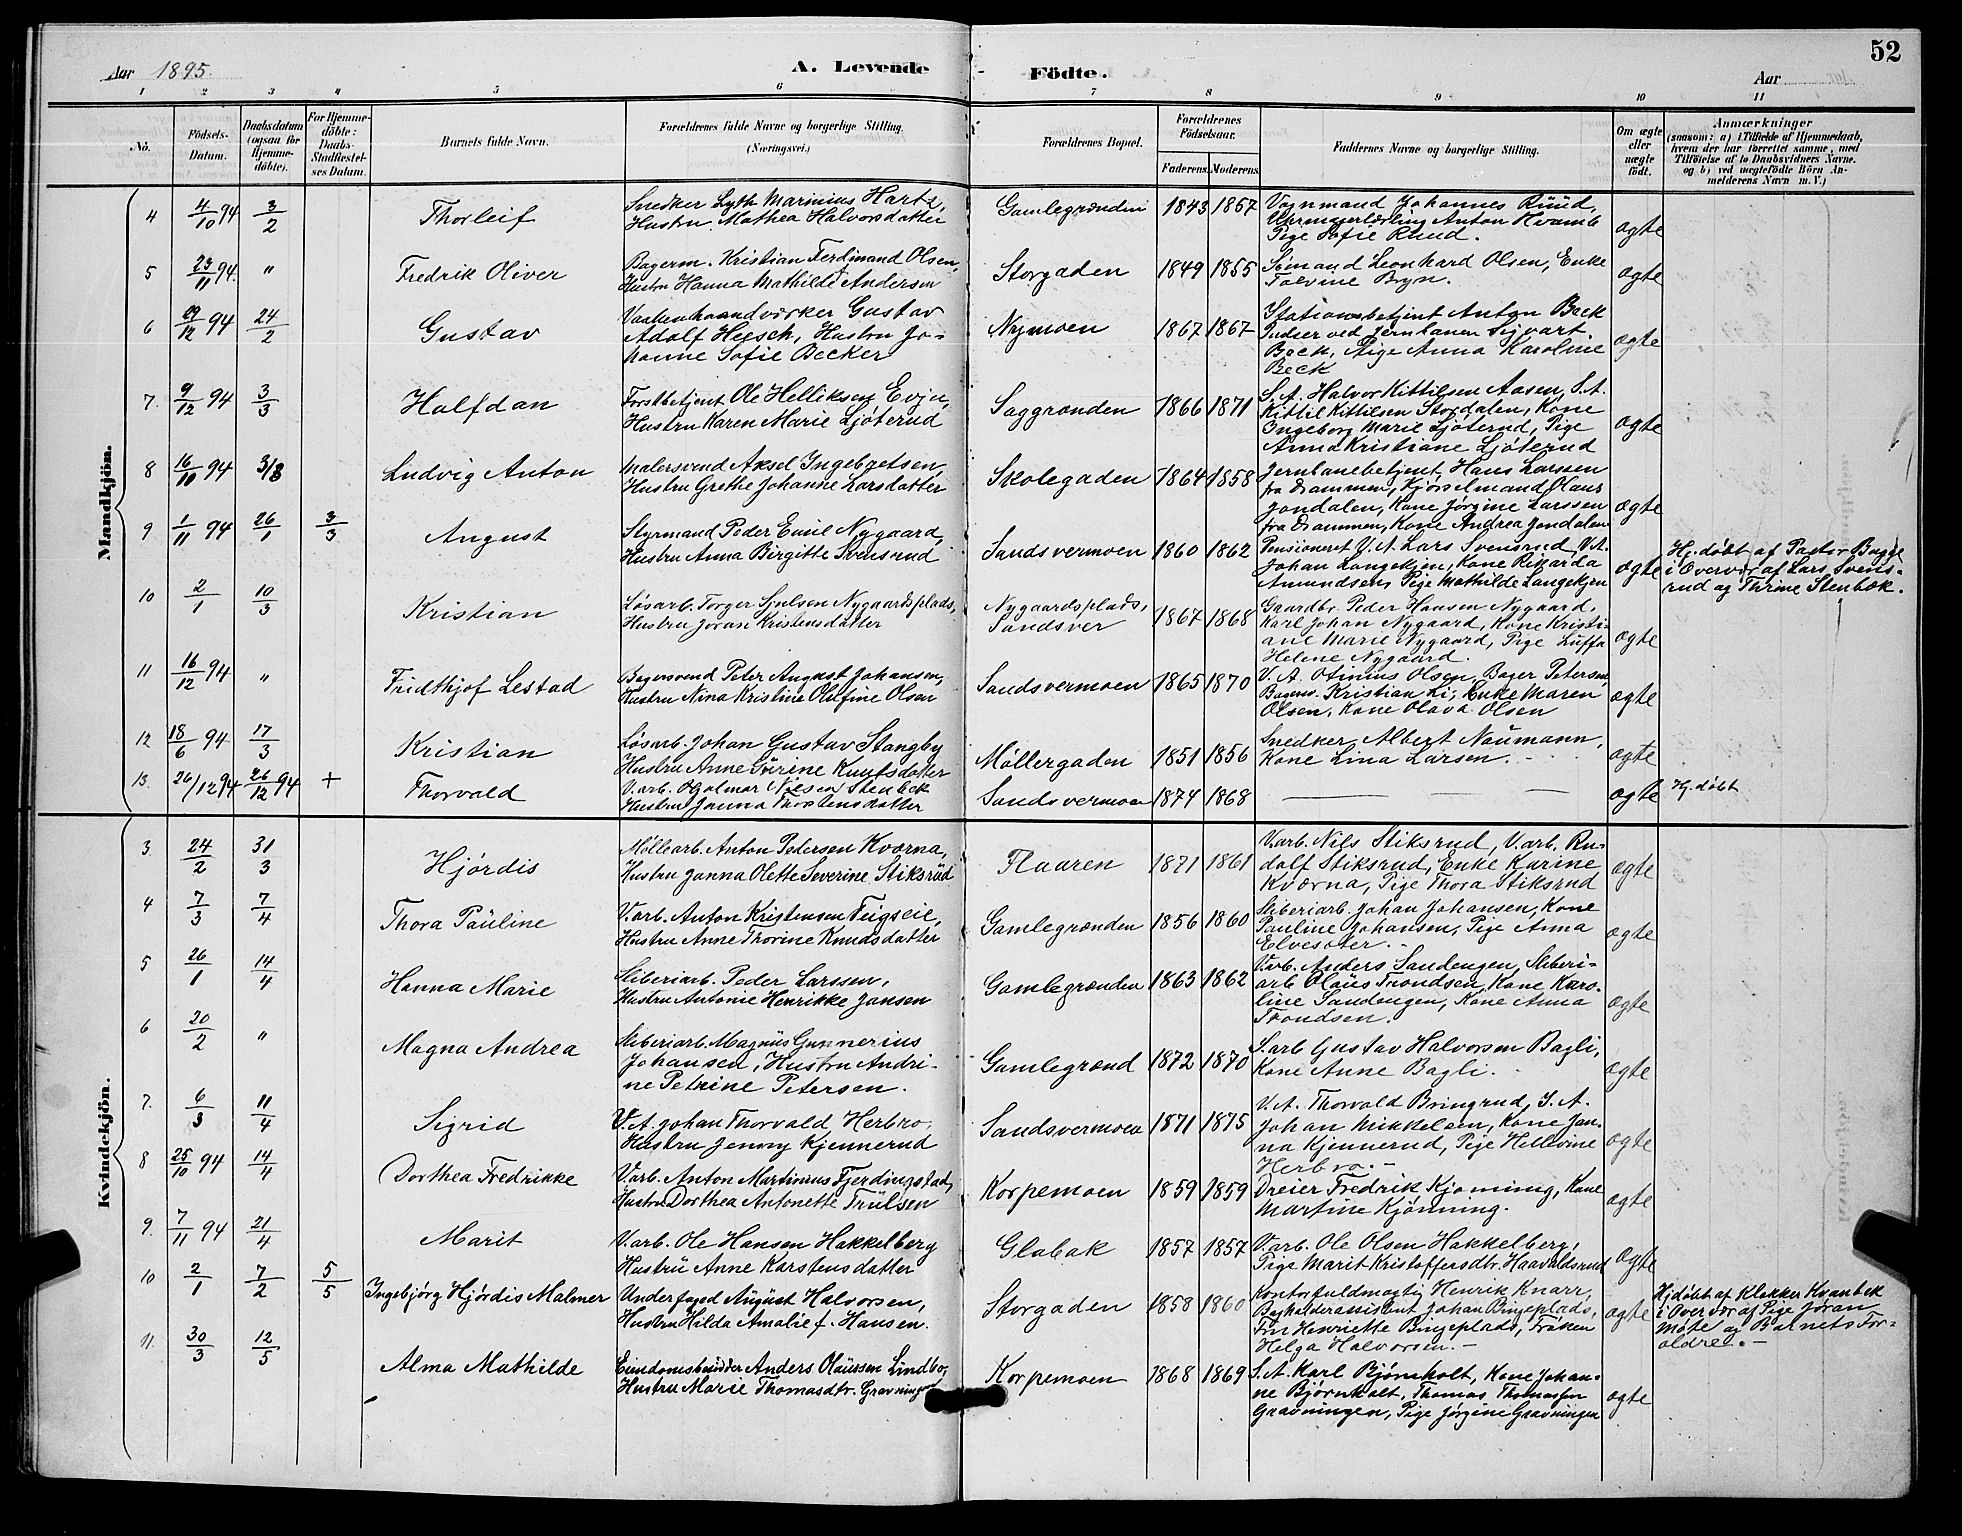 52
Aar 1895.
A. Levende Födte.
Aar
1 2 3 4 5 6 7 8 9 10 11
No.
Födsels-Datum.
Daabsdatum (ogsaa for Hjemme-döbte).
For Hjemme-döbte: Daabs-Stadfæstel-ses Datum.
Barnets fulde Navn.
Forældrenes fulde Navne og borgerlige Stilling. (Næringsvei.)
Forældrenes Bopæl.
Forældrenes Födselsaar.
Faderens. Moderens.
Faddernes Navne og borgerlige Stilling.
Om ægte eller uægte födt.
Anmærkninger
(saasom: a) i Tilfælde af Hjemmedaab, hvem der har forrettet samme, med Tilföielse af to Daabsvidners Navne. og b) ved uægtefödte Börn Anmelderens Navn m. V.)
Mandkjön.
4 4/10 94 3/2 Thorleif
Snedker Lyth Marinius Hartz,
Hustru Mathea Halvorsdatter
Gamlegrænden 1843 1857
Vognmand Johannes Ruud,
Uhrmagerlærling Anton Hvamb
Pige Sofie Ruud.
ægte
5 23/11 94. " Fredrik Oliver
Bagerm. Kristian Ferdinand Olsen,
Hustru Hanna Mathilde Andersen
Storgaden 1849 1855
Sømand Leonhard Olsen, Enke
Tolvine Bryn.
ægte
6 19/12 94 24/2 Gustav
Vaabenhaandværker Gustav
Adolf Heesch, Hustru Jo-
hanne Sofie Becker
Nymoen 1867 1867
Stationsbetjent Anton Beck
Pudser ved Jernbanen Sigvart
Beck, Pige Anna Karoline
Beck
ægte
7. 9/12 94 3/3 Halfdan
Forstbetjent Ole Helliksen Evju,
Hustru Karen Marie Ljøterud
Saggrænden 1866 1871
S.A. Halvor Kittilsen Aasen, S.A.
Kittil Kittilsen Stordalen, Kone
Ingeborg Marie Ljøterud, Pige
Anna Kristiane Ljøterud
ægte
8 16/10 94 3/3 Ludvig Anton
Malersvend Aksel Ingebretsen,
Hustru Grethe Johanne Larsdatter
Skolegaden 1864 1858
Jernbanebetjent Hans Larssen
fra Drammen, Kjørselmand Olaus
Jondalen, Kone Jørgine Larssen
fra Drammen, Kone Andrea Jondalen
ægte
9 1/11 94 26/1 3/3 August
Styrmand Peder Emil Nygaard,
Hustru Anna Birgitte Svensrud
Sandsvermoen 1860 1862
Pensioneret V.A. Lars Svensrud, V.A.
Johan Langekjen, Kone Rikarda
Amundsen, Pige Mathilde Langekjen
ægte
Hj. døbt af Pastor Bugge
i Overvær af Lars Svens-
rud og Thrine Stenbæk.
10 2/1 10/3 Kristian
Løsarb. Torger Gjulsen Nygaardsplads,
Hustru Jøran Kristensdatter
Nygaardsplads,
Sandsver
1867 1868
Gaardbr. Peder Hansen Nygaard,
Karl Johan Nygaard, Kone Kristi-
ane Marie Nygaard, Pige Luffa
Helene Nygaard.
ægte
11 16/12 94 " Fridthjof Lestad
Bagersvend Peter August Johansen,
Hustru Nina Kristine Olufine Olsen
Sandsvermoen 1865 1870
V.A. Otinius Olsen, Bager Petersen,
Bagersv. Kristian Li, Enke Maren
Olsen, Kone Olava Olsen
ægte
12 18/6 94 17/3 Kristian
Løsarb. Johan Gustav Stangby
Hustru Anne Sørine Knutsdatter
Møllergaden 1851 1856
Snedker Albert Naumann,
Kone Lina Larsen.
ægte
13. 26/12 94 26/12 94 + Thorvald
V.arb. Hjalmar Nilsen Stenbek
Hustru Janna Thorstensdatter
Sandsvermoen 1874 1868
ægte Hj. døbt
Kvindekjön.
3 24/2 31/3 Hjørdis
Møllearb. Anton Pedersen Kværna,
Hustru Janna Olette Severine Stiksrud
Flaaren 1871 1861
V.arb. Nils Stiksrud, V.arb. Ru-
dolf Stiksrud, Enke Karine
Kværna, Pige Thora Stiksrud
ægte
4 7/3 7/4 Thora Pauline
V.arb. Anton Kristensen Teigseie,
Hustru Anne Thorine Knudsdatter
Gamlegrænden 1856 1860
Sliberiarb. Johan Johansen, Kone
Pauline Johansen, Pige Anna
Elvesæter.
ægte
5 26/1 14/4 Hanna Marie
Sliberiarb. Peder Larssen,
Hustru Antonie Henrikke Jansen
Gamlegrænden 1863 1862
V.arb. Anders Sandengen, Sliberi-
arb Olaus Trondsen, Kone Karo-
line Sandengen, Kone Anna
Trondsen.
ægte
6 20/2 " Magna Andrea
Sliberiarb. Magnus Gunnerius
Johansen, Hustru Andri-
ne Petrine Petersen.
Gamlegrænd 1872 1870
S.arb Gustav Halvorsen Bagli,
Kone Anne Bagli.
ægte
7. 6/3 11/4 Sigrid
V.A. Johan Thorvald Herbro,
Hustru Jenny Kjennerud
Sandsvermoen 1871 1875
V.A. Thorvald Bringrud, S.A.
Johan Mikkelsen, Kone Jan-
na Kjennerud, Pige Hellvine
Herbro.
ægte
8 25/10 94 14/4 Dorthea Fredrikke
V.arb. Anton Martinius Fjerdingstad,
Hustru Dorthea Antonette Trulsen
Korpemoen 1859 1859
Dreier Fredrik Kjønning, Kone
Martine Kjønning.
ægte
9. 7/11 94 21/4 Marit
V.arb. Ole Hansen Hakkelberg
Hustru Anne Karstensdatter
Glabak 1857 1857
V.arb. Ole Olsen Hakkelberg,
Pige Marit Kristoffersdtr. Haavaldsrud
ægte
10 2/1 7/2 5/5 Ingebjørg Hjørdis Malmer
Underfoged August Halvorsen,
Hustru Hilda Amalie f. Hansen.
Storgaden 1858 1860
Kontorfuldmægtig Henrik Knarr,
Bogholderassistent Johan Bingeplads,
Fru Henriette Bingeplads, Frøken
Helga Halvorsen.
ægte
Hj.døbt af Klokker Kvanbek
i Overvær af Pige Jøran
Møte og Barnets For-
ældre.
11. 30/3 12/5 Alma Mathilde
Eiendomsbesidder Anders Olaussen Lindbo,
Hustru Marie Thomasdtr. Gravningen
Korpemoen 1868 1869
S.A. Karl Bjørnholt, Kone Johan-
ne Bjørnholt, Thomas Thomassen
Gravningen, Pige Jørgine Gravningen
ægte